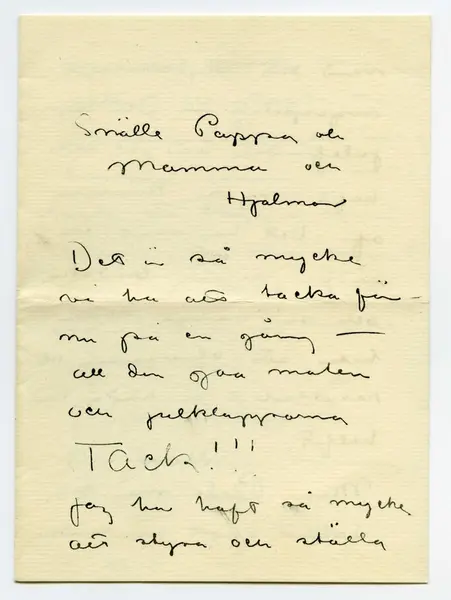 Snälle Pappa och
Mamma och
Hjalmar
Det är så mycke
vi ha att tacka för
nu på en gång —
all den goa maten
och julklapparna
Tack!!!
Jag har haft så mycke
att styra och ställa